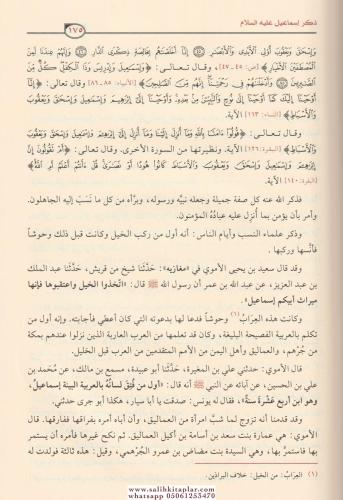 ذكر إسماعيل عليه السلام
١٧٥
وَإِسْحَقَ وَيَعْقُوبَ أُوْلِي الْأَيْدِي وَالْأَبْصَارِ ۝ إِنَّا أَخْلَصْنَاهُم بِخَالِصَةٍ ذِكْرَى الدَّارِ ۝ وَإِنَّهُمْ عِندَنَا لَمِنَ
الْمُصْطَفَيْنَ الْأَخْيَارِ﴾ [ص: ٤٥ - ٤٧]، وقال تعالى: ﴿وَإِسْمَاعِيلَ وَإِدْرِيسَ وَذَا الْكِفْلِ كُلٌّ مِّنَ
الصَّابِرِينَ ۝ وَأَدْخَلْنَاهُمْ فِي رَحْمَتِنَا إِنَّهُم مِّنَ الصَّالِحِينَ﴾ [الأنبياء: ٨٥ - ٨٦] وقال تعالى: ﴿إِنَّا
أَوْحَيْنَا إِلَيْكَ كَمَا أَوْحَيْنَا إِلَى نُوحٍ وَالنَّبِيِّينَ مِنْ بَعْدِهِ وَأَوْحَيْنَا إِلَى إِبْرَاهِيمَ وَإِسْمَاعِيلَ وَإِسْحَقَ وَيَعْقُوبَ
وَالْأَسْبَاطِ﴾ [النساء: ١٦٣] الآية.
وقال تعالى: ﴿قُولُوا آمَنَّا بِاللَّهِ وَمَا أُنزِلَ إِلَيْنَا وَمَا أُنزِلَ إِلَى إِبْرَاهِيمَ وَإِسْمَاعِيلَ وَإِسْحَقَ وَيَعْقُوبَ
وَالْأَسْبَاطِ﴾ [البقرة: ١٣٦] الآية. ونظيرتها من السورة الأخرى. وقال تعالى: ﴿أَمْ تَقُولُونَ إِنَّ
إِبْرَاهِيمَ وَإِسْمَاعِيلَ وَإِسْحَقَ وَيَعْقُوبَ وَالْأَسْبَاطَ كَانُوا هُودًا أَوْ نَصَارَى قُلْ أَأَنتُمْ أَعْلَمُ أَمِ اللَّهُ﴾
[البقرة: ١٤٠] الآية.
فذكر الله عنه كل صفة جميلة وجعله نبيَّه ورسوله، وبرَّأه من كل ما نَسَب إليه الجاهلون
وأمر بأن يؤمن بما أُنزل عليه عبادُه المؤمنون.
وذكر علماء النسب وأيام الناس: أنه أول من ركب الخيل وكانت قبل ذلك وحوشاً
فأنَّسها وركبها.
وقد قال سعيد بن يحيى الأموي في «مغازيه»: حَدَّثنا شيخ من قريش، حَدَّثنا عبد الملك
بن عبد العزيز، عن عبد الله بن عمر أن رسول الله ﷺ قال: «اتَّخذوا الخيل واعتقبوها فإنها
ميراث أبيكم إسماعيل».
وكانت هذه العِرَابُ(١) وحوشاً فدعا لها بدعوته التي كان أعطي فأجابته. وإنه أول من
تكلم بالعربية الفصيحة البليغة، وكان قد تعلمها من العرب العاربة الذين نزلوا عندهم بمكة
من جُرْهم، والعماليق وأهل اليمن من الأمم المتقدمين من العرب قبل الخليل.
قال الأموي: حدثني علي بن المغيرة، حَدَّثنا أبو عبيدة، مسمع بن مالك، عن مُحَمد بن
علي بن الحسين، عن آبائه عن النبي ﷺ أنه قال: «أول من فُتِق لسانُه بالعربية البينة إسماعيلُ،
وهو ابن أربع عَشْرةَ سنة»، فقال له يونس: صدقت يا أبا سيار، هكذا أبو جرى حدثني.
وقد قدمنا أنه تزوج لما شبَّ امرأة من العماليق، وأن أباه أمره بفراقها ففارقها. قال
الأموي: هي عمارة بنت سعد بن أسامة بن أكيل العماليق. ثم نكح غيرها فأمره أن يستمر
بها فاستمرَّ بها، وهي السيدة بنت مضاض بن عمرو الجُرْهمي، وقيل: هذه ثالثة فولدت له
(١) العِرَابُ: من الخيل: خلاف البراذين.
www.salihkitaplar.com
whatsapp 05061253470